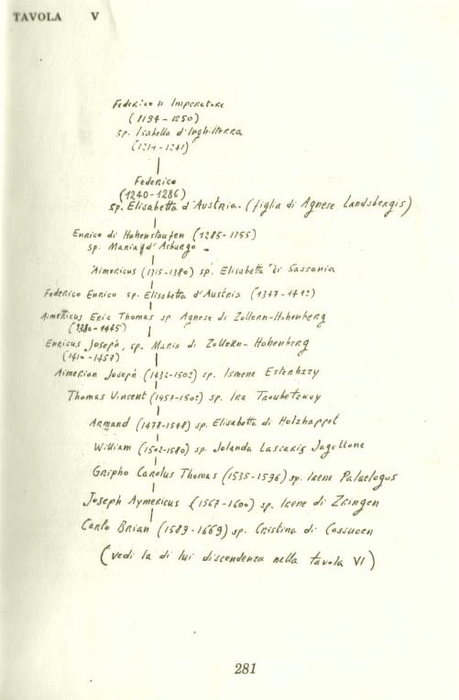 TAVOLA V
Federico II Imperatore
(1194-1250)
sp. Isabella d'Inghilterra
(1214-1241)
Federico
(1240-1286)
sp. Elisabetta d'Austria. (figlia di Agnese Landsbergis)
Enrico di Hohenstaufen (1285-1355)
sp. Maria d'Asburgo.
Aimericus (1315-1380) sp. Elisabetta di Sassonia
Federico Enrico sp. Elisabetta d'Austria (1347-1412)
Aimericus Eric Thomas sp Agnese di Zollern-Hohenberg
(1380-1445)
Enricus Joseph, sp. Maria di Zollern-Hohenberg
(1410-1457)
Aimerian Joseph (1432-1502) sp. Ismene Esterhazy
Thomas Vincent (1457-1502) sp. Ira Troubetzkoy
Armand (1478-1548) sp. Elisabetta di Holzhappel
William (1502-1580) sp. Jolanda Lascaris Jagellone
Gripho Carolus Thomas (1535-1596) sp. Irene Palaelogos
Joseph Aymericus (1567-1600) sp. Irene di Zringen
Carlo Brian (1589-1669) sp. Cristina di
(vedi la di lui discendenza nella tavola VI)
281